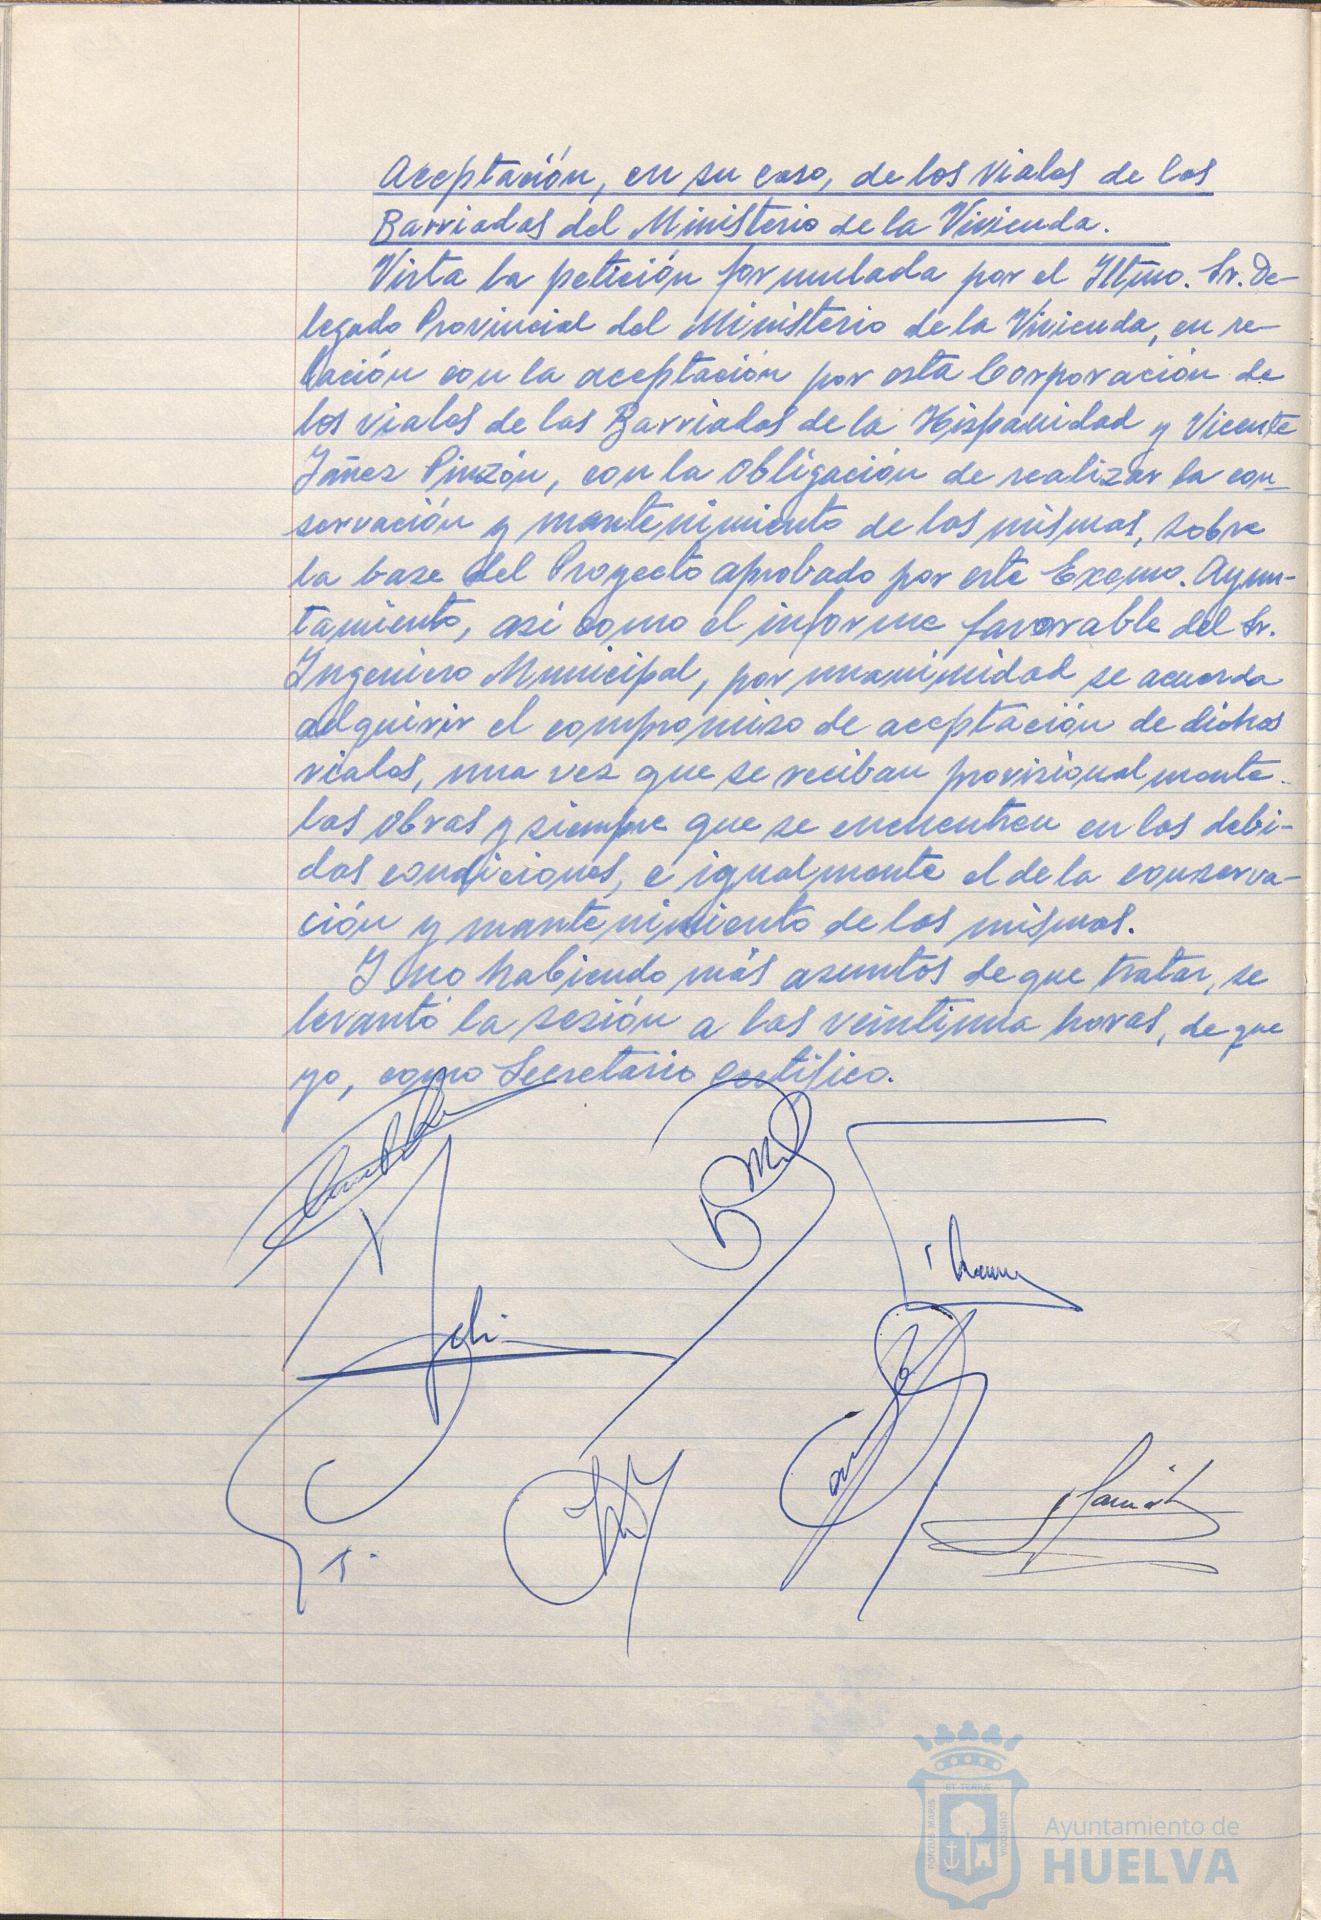 Aceptación, en su caso, de los viales de las
Barriadas del Ministerio de la Vivienda.
Vista la petición formulada por el Iltmo. Sr. De-
legado Provincial del Ministerio de la Vivienda, en re-
lación con la aceptación por esta Corporación de
los viales de las Barriadas de la Hispanidad y Vicente
Yáñez Pinzón, con la obligación de realizar la con-
servación y mantenimiento de los mismos, sobre
la base del Proyecto aprobado por este Excmo. Ayun-
tamiento, así como el informe favorable del Sr.
Ingeniero Municipal, por unanimidad se acuerda
adquirir el compromiso de aceptación de dichos
viales, una vez que se reciban provisionalmente
las obras y siempre que se encuentren en las debi-
das condiciones, e igualmente el de la conserva-
ción y mantenimiento de los mismos.
Y no habiendo más asuntos de que tratar, se
levantó la sesión a las veintiuna horas, de que
yo, como Secretario certifico.
PORTUS MARIS
ET TERRÆ
CUSTODIA
Ayuntamiento de
HUELVA